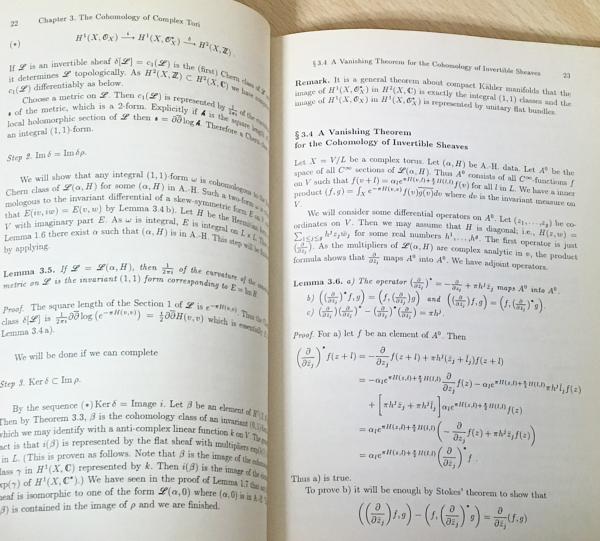 22 Chapter 3. The Cohomology of Complex Tori
(*) H¹(X, 𝒪_X) → H¹(X, 𝒪*_X) →δ H²(X, ℤ).
If ℒ is an invertible sheaf δ[ℒ] = c₁(ℒ) is the (first) Chern class of
it determines ℒ topologically. As H²(X, ℤ) ⊂ H²(X, ℂ) we have
c₁(ℒ) differentiably as below.
Choose a metric on ℒ. Then c₁(ℒ) is represented by
of the metric, which is a 2-form. Explicitly if is the square length of
local holomorphic section of ℒ then • = ∂∂̄ log . Therefore a Chern
an integral (1, 1)-form.
Step 2. Im δ = Im δρ.
We will show that any integral (1, 1)-form ω is cohomologous to the
Chern class of ℒ(α, H) for some (α, H) in A.-H. Such a two-form
mologous to the invariant differential of a skew-symmetric form E on
that E(iv, iw) = E(v, w) by Lemma 3.4 b). Let H be the Hermitian
V with imaginary part E. As ω is integral, E is integral on L × L. Then
Lemma 1.6 there exist α such that (α, H) is in A.-H. This step will be
by applying.
Lemma 3.5. If ℒ = ℒ(α, H), then 1/2πi of the curvature of the
metric on ℒ is the invariant (1, 1) form corresponding to E = Im H.
Proof. The square length of the Section 1 of ℒ is e^{−πH(v,v)}. Thus the
class δ[ℒ] = 1/2πi ∂∂̄ log (e^{−πH(v,v)}) = i/2 ∂∂̄H(v, v) which is essentially
Lemma 3.4 a).
We will be done if we can complete
Step 3. Ker δ ⊂ Im ρ.
By the sequence (*) Ker δ = Image i. Let β be an element of H¹(X,
Then by Theorem 3.3, β is the cohomology class of an invariant (0, 1)
which we may identify with a anti-complex linear function k on V. The
fact is that i(β) is represented by the flat sheaf with multipliers exp
in L. (This is proven as follows. Note that β is the image of the
class γ in H¹(X, ℂ) represented by k. Then i(β) is the image of the
exp(γ) of H¹(X, ℂ*).) We have seen in the proof of Lemma 1.7 that
sheaf is isomorphic to one of the form ℒ(α, 0) where (α, 0) is in A.-H.
β) is contained in the image of ρ and we are finished.
§ 3.4 A Vanishing Theorem for the Cohomology of Invertible Sheaves 23
Remark. It is a general theorem about compact Kähler manifolds that the
image of H¹(X, 𝒪*_X) in H²(X, ℂ) is exactly the integral (1,1) classes and the
image of H¹(X, 𝒪_X) in H¹(X, 𝒪*_X) is represented by unitary flat bundles.
§ 3.4 A Vanishing Theorem
for the Cohomology of Invertible Sheaves
Let X = V/L be a complex torus. Let (α, H) be A.-H. data. Let A⁰ be the
space of all C^∞ sections of ℒ(α, H). Thus A⁰ consists of all C^∞-functions f
on V such that f(v + l) = α_l e^{πH(v,l)+π/2 H(l,l)} f(v) for all l in L. We have a inner
product (f, g) = ∫_X e^{−πH(v,v)} f(v) \overline{g(v)} dv where dv is the invariant measure on
V.
We will consider some differential operators on A⁰. Let (z₁, . . . , z_g) be co-
ordinates on V. Then we may assume that H is diagonal; i.e., H(z, w) =
∑_{1≤j≤g} hʲ z_j w̄_j for some real numbers h¹, . . . , h^g. The first operator is just
(∂/∂z̄_j). As the multipliers of ℒ(α, H) are complex analytic in v, the product
formula shows that ∂/∂z̄_j maps A⁰ into A⁰. We have adjoint operators.
Lemma 3.6. a) The operator (∂/∂z̄_j)* = −∂/∂z_j + πhʲ z̄_j maps A⁰ into A⁰.
b) ((∂/∂z̄_j)* f, g) = (f, (∂/∂z̄_j) g) and ((∂/∂z̄_j) f, g) = (f, (∂/∂z̄_j)* g).
c) (∂/∂z̄_j)(∂/∂z̄_j)* − (∂/∂z̄_j)*(∂/∂z̄_j) = πhʲ.
Proof. For a) let f be an element of A⁰. Then
(∂/∂z̄_j)* f(z + l) = −∂/∂z_j f(z + l) + πhʲ(z̄_j + l̄_j) f(z + l)
= −α_l e^{πH(z,l)+π/2 H(l,l)} ∂/∂z_j f(z) − α_l e^{πH(z,l)+π/2 H(l,l)} πhʲ l̄_j f(z)
+ [πhʲ z̄_j + πhʲ l̄_j] α_l e^{πH(z,l)+π/2 H(l,l)} f(z)
= α_l e^{πH(z,l)+π/2 H(l,l)} (−∂/∂z_j f(z) + πhʲ z̄_j f(z))
= α_l e^{πH(z,l)+π/2 H(l,l)} (∂/∂z̄_j)* f .
Thus a) is true.
To prove b) it will be enough by Stokes' theorem to show that
((∂/∂z̄_j) f, g) − (f, (∂/∂z̄_j)* g) = ∂/∂z̄_j (f, g)